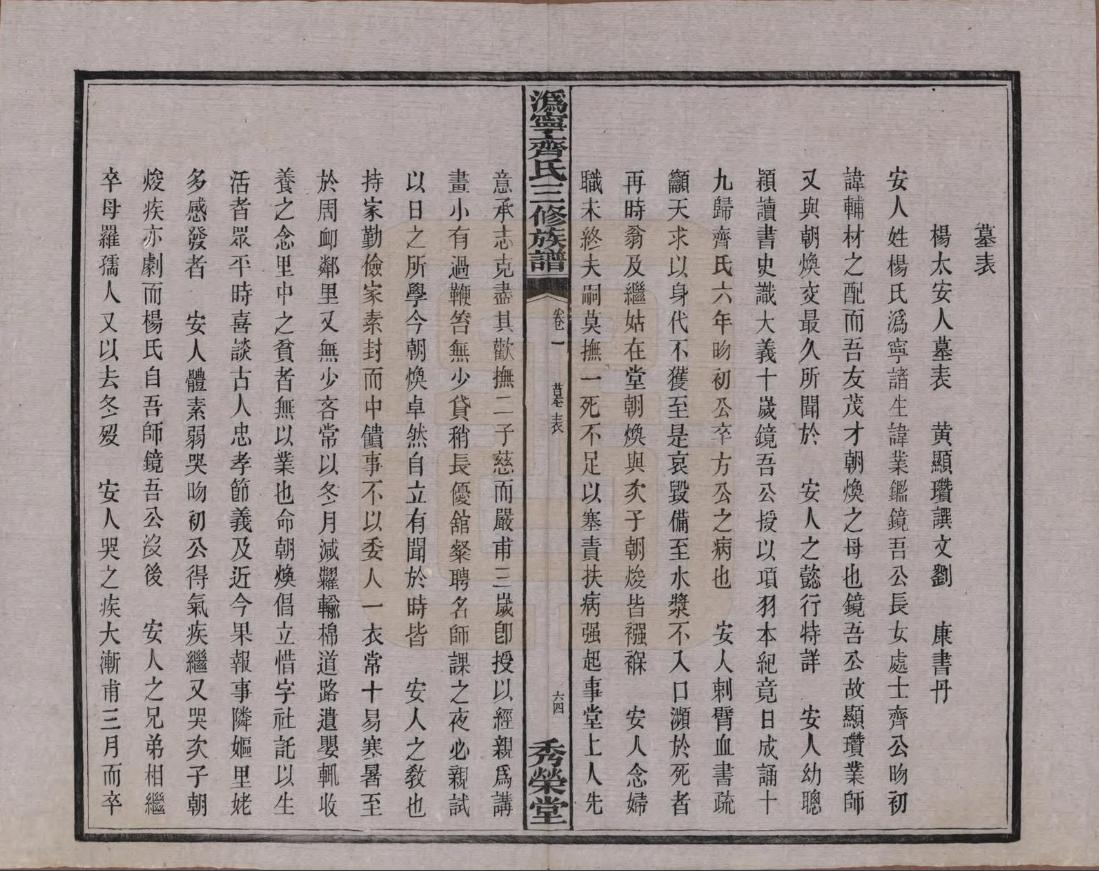 墓表
楊太安人墓表　黃顯瓚譔文劉　康書丹
安人姓楊氏潙寧諸生諱業鑑鏡吾公長女處士齊公昒初
諱輔材之配而吾友茂才朝煥之母也鏡吾公故顯瓚業師
又與朝煥交最久所聞於　安人之懿行特詳　安人幼聰
穎讀書史識大義十歲鏡吾公授以項羽本紀竟日成誦十
九歸齊氏六年昒初公卒方公之病也　安人刺臂血書疏
籲天求以身代不獲至是哀毀備至水漿不入口瀕於死者
再時翁及繼姑在堂朝煥與次子朝焌皆襁褓　安人念婦
職未終夫嗣莫撫一死不足以塞責扶病强起事堂上人先
潙寧齊氏三修族譜
卷一
墓表
六四
秀榮堂
意承志克盡其歡撫二子慈而嚴甫三歲卽授以經親爲講
畫小有過鞭笞無少貸稍長優舘粲聘名師課之夜必親試
以日之所學今朝煥卓然自立有聞於時皆　安人之敎也
持家勤儉家素封而中饋事不以委人一衣常十易寒暑至
於周卹鄰里又無少吝常以冬月減糶輸棉道路遺嬰輒收
養之念里中之貧者無以業也命朝煥倡立惜字社託以生
活者眾平時喜談古人忠孝節義及近今果報事隣嫗里姥
多感發者　安人體素弱哭昒初公得氣疾繼又哭次子朝
焌疾亦劇而楊氏自吾師鏡吾公沒後　安人之兄弟相繼
卒母羅孺人又以去冬歿　安人哭之疾大漸甫三月而卒